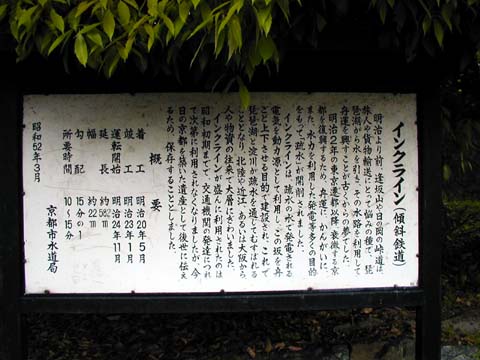 インクライン（傾斜鉄道）
明治より前、逢坂山や日の岡の峠道は、
旅人や貨物輸送にとって悩みの種で、琵
琶湖から水を引き、その水路を利用して
舟運を興すことが古くからの夢でした。
明治2年の東京遷都以降、衰微する京
都を復興するため、舟運に、かんがいに、
また、水力を利用した発電等多くの目的
をもって「疏水」が開削されました。
インクラインは、疏水の水で発電される
電気を動力源として利用し、この坂を舟
ごと上下させる目的で建設され、これで
琵琶湖と淀川が疏水を通じてむすばれる
こととなり、北陸や近江、あるいは大阪から
人や物資の往来で大層にぎわいました。
インクラインが盛んに利用されたのは
昭和初期までで、交通機関の発達につれ
て次第に利用されなくなりましたが、今
日の京都を築いた遺産として後世に伝え
るため、保存することとしました。
概要
着工 明治20年5月
竣工 明治23年1月
運転開始 明治24年11月
延長 約582m
幅 約22m
勾配 15分の1
所要時間 10～15分
昭和52年3月
京都市水道局